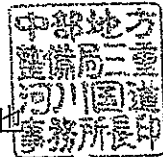 中部地方
整備局三重
河川国道
事務所長印